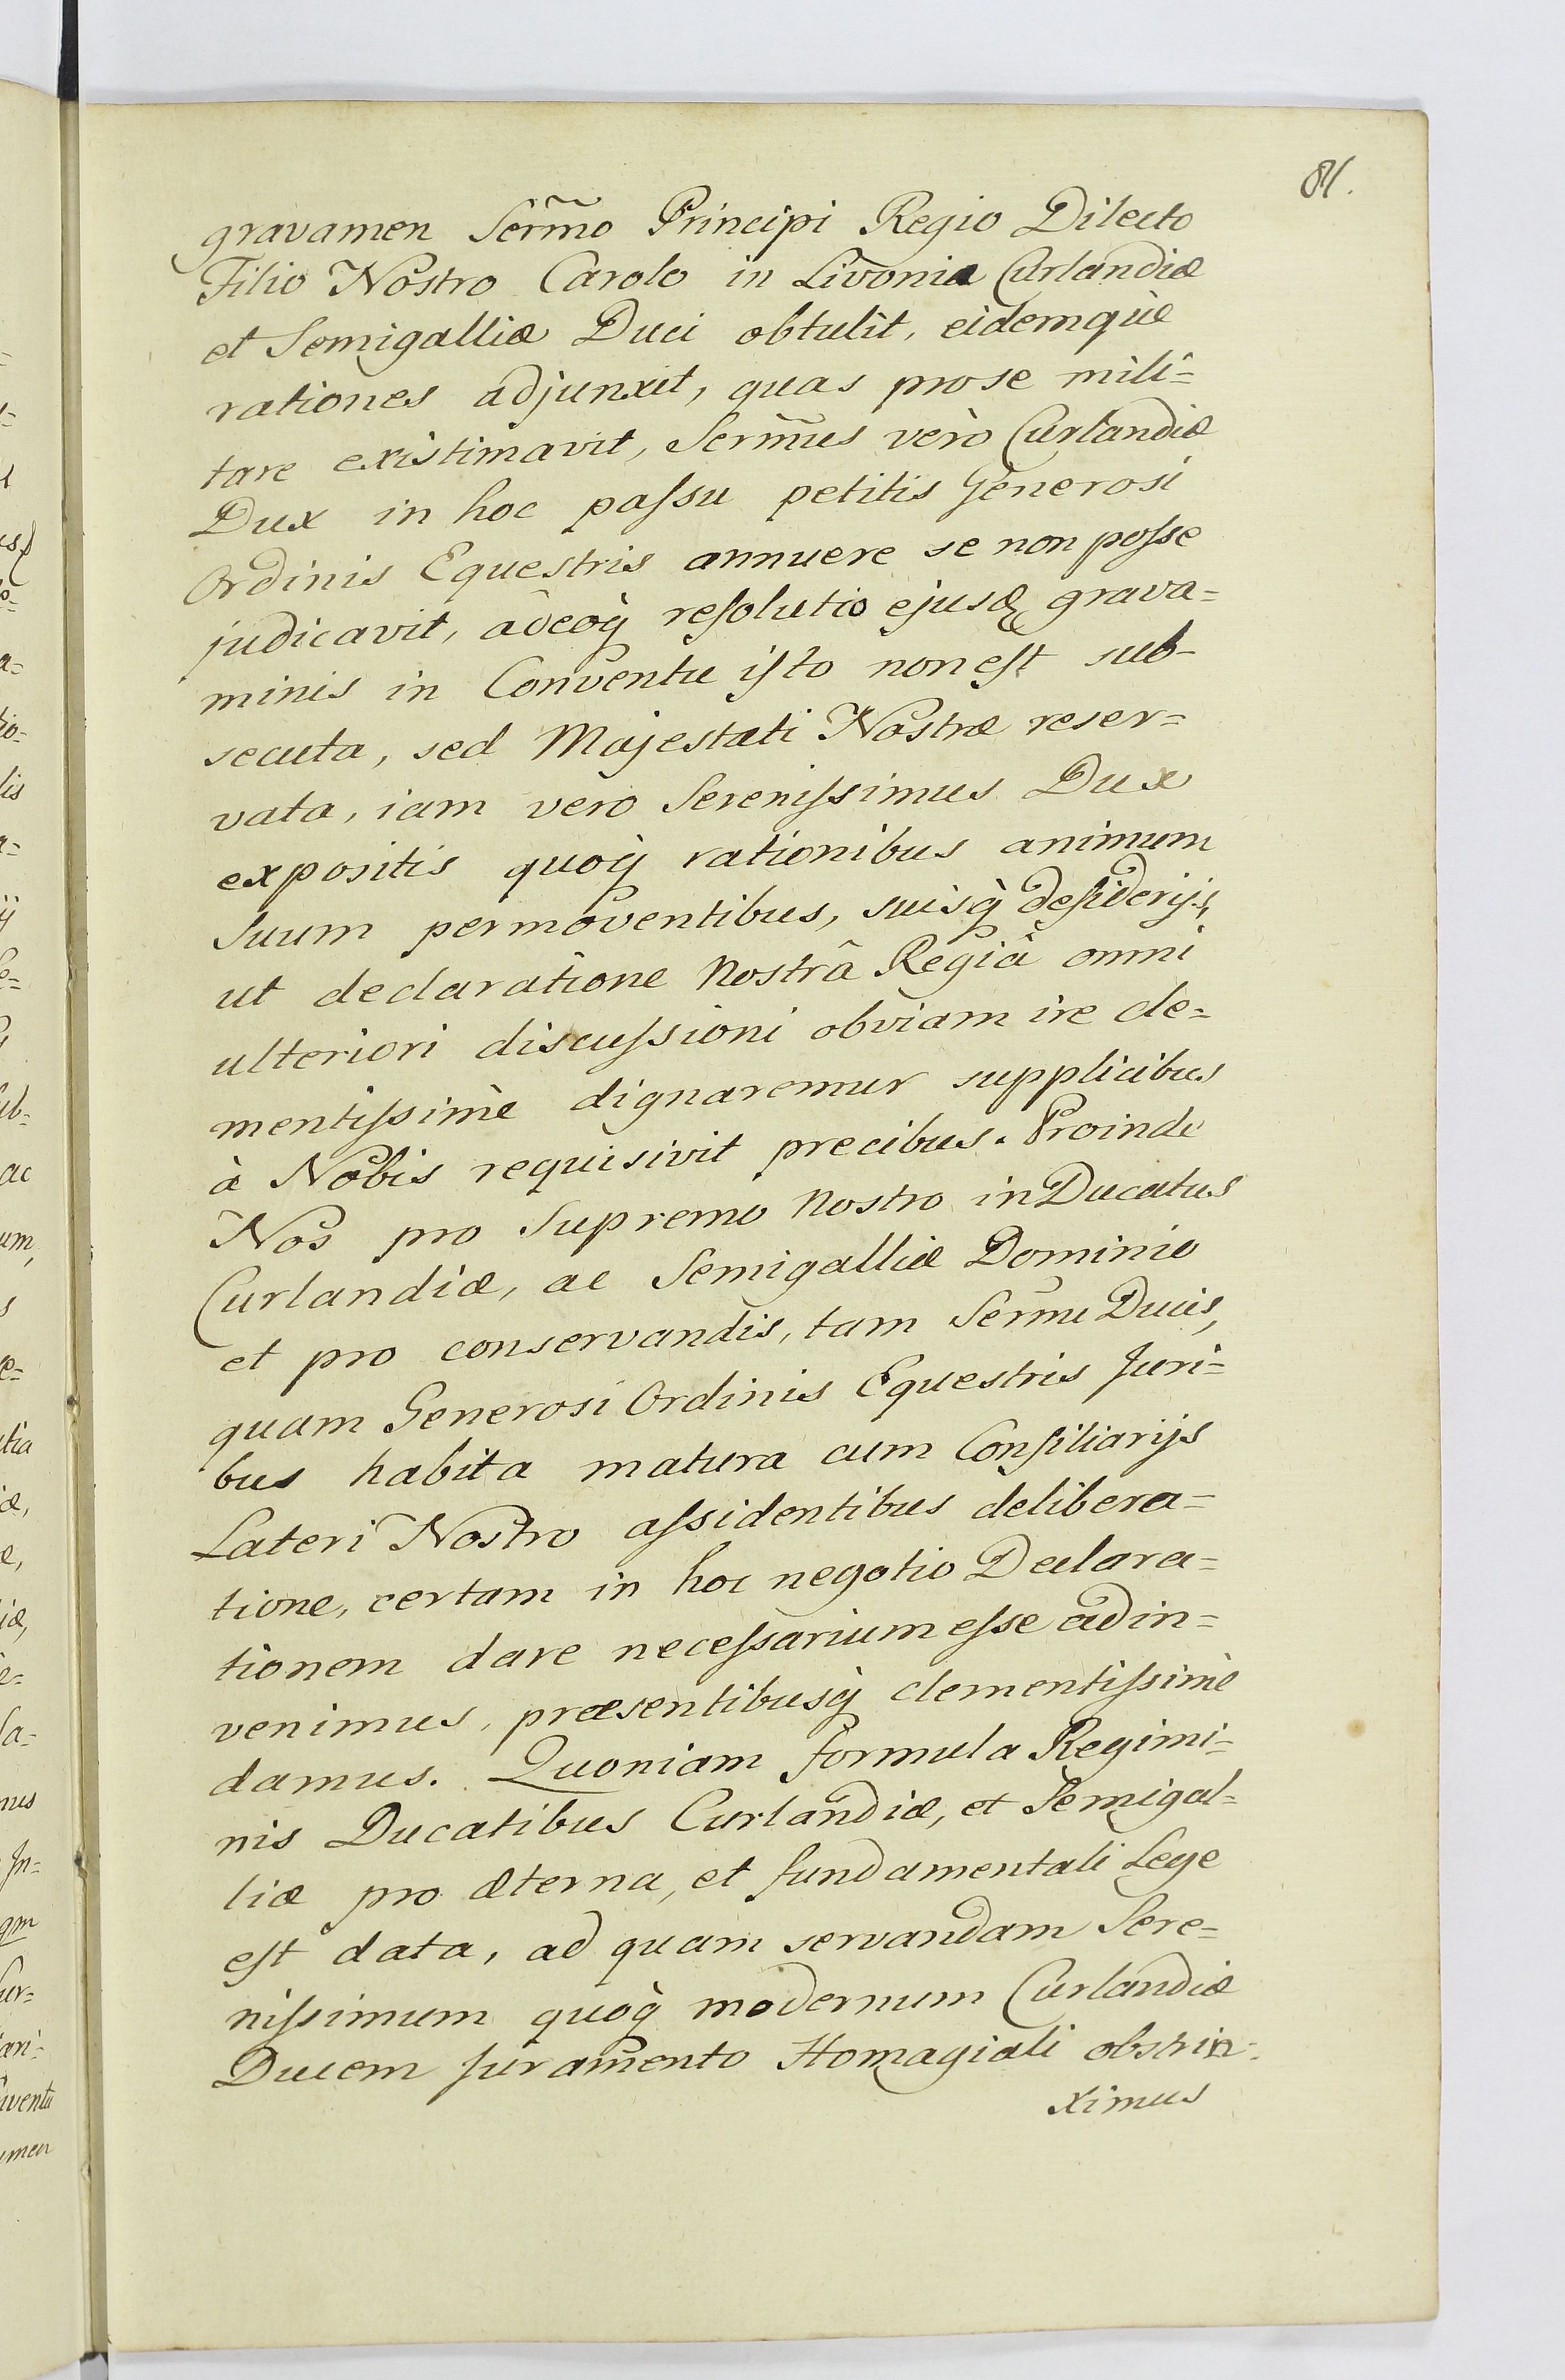 81.
gravamen Serm̃o Principi Regio Dilecto
Filio Nostro Carolo in Livonia Curlandiæ
et Semigalliæ Duci obtulit, eidemquè
rationes adjunxit, quas pro se mili=
tare existimavit, Serm̃us verò Curlandiæ
Dux in hoc paſsu petitis Generosi
Ordinis Equestris annuere se non poſse
judicavit, adeoq̀ reſolutio ejusd grava=
minis in Conventu iſto non eſt sub-
secuta, sed Majestati Nostræ reser=
vata, iam vero Sereniſsimus Dux
expositis quoq̀ rationibus animum
Suum permoventibus, suisq̀ deſiderijs,
ut declaratione Nostrâ Regiâ omni
ulteriori discuſsioni obviam ire cle=
mentiſsimè dignaremur supplicibus
à Nobis requisivit precibus. Proinde
Nos pro Supremo Nostro in Ducatus
Curlandiæ, ac Semigalliæ Dominio
et pro conservandis, tam Serm̃i Ducis,
quam Generosi Ordinis Equestris Juri=
bus habita matura cum Conſiliarijs
Lateri Nostro aſsidentibus delibera=
tione, certam in hoc negotio Declara=
tionem dare neceſsarium eſse adin=
venimus, præsentibusq̀ clementiſsimè
damus. Quoniam formula Regimi=
nis Ducatibus Curlandiæ, et Semigal=
liæ pro æterna, et fundamentali Lege
eſt data, ad quam servandam Sere=
niſsimum quoq̀ modernum Curlandiæ
Ducem Juramento Homagiali obstrin=
ximus